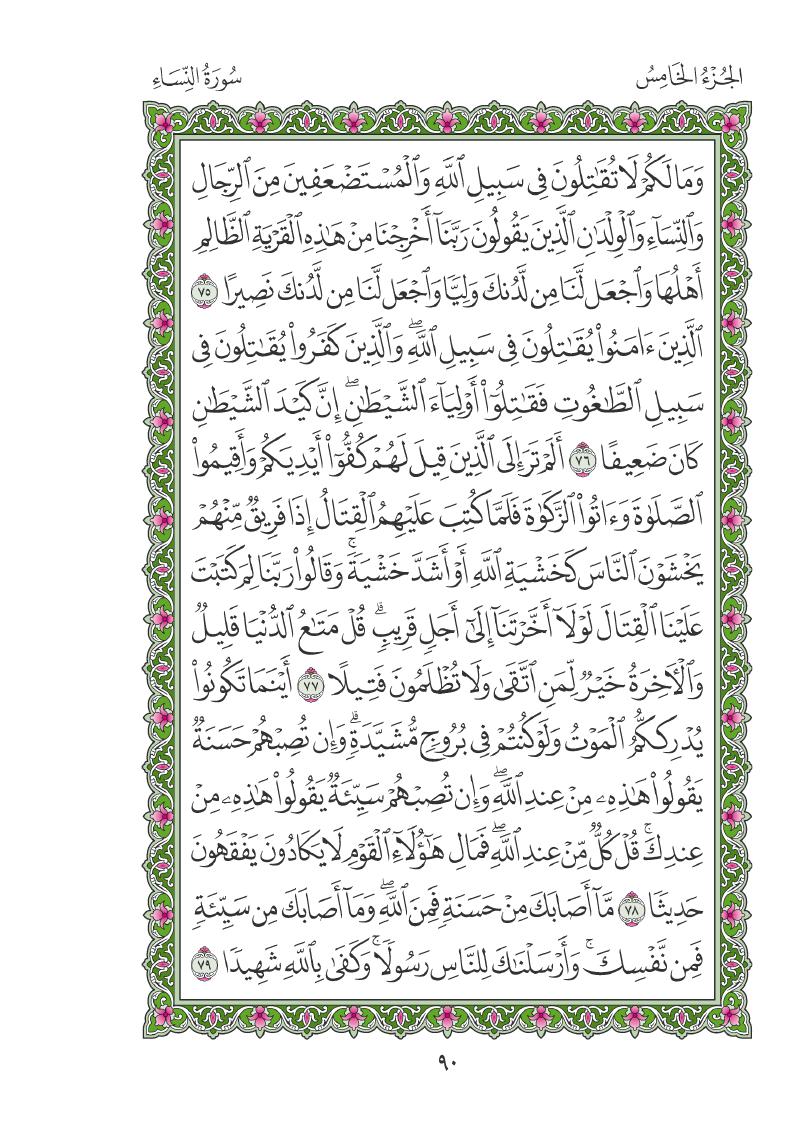 الجُزْءُ الخَامِسُ
سُورَةُ النِّسَاءِ
وَمَا لَكُمْ لَا تُقَٰتِلُونَ فِى سَبِيلِ ٱللَّهِ وَٱلْمُسْتَضْعَفِينَ مِنَ ٱلرِّجَالِ
وَٱلنِّسَآءِ وَٱلْوِلْدَٰنِ ٱلَّذِينَ يَقُولُونَ رَبَّنَآ أَخْرِجْنَا مِنْ هَٰذِهِ ٱلْقَرْيَةِ ٱلظَّالِمِ
أَهْلُهَا وَٱجْعَل لَّنَا مِن لَّدُنكَ وَلِيًّا وَٱجْعَل لَّنَا مِن لَّدُنكَ نَصِيرًا ٧٥
ٱلَّذِينَ ءَامَنُوا۟ يُقَٰتِلُونَ فِى سَبِيلِ ٱللَّهِ ۖ وَٱلَّذِينَ كَفَرُوا۟ يُقَٰتِلُونَ فِى
سَبِيلِ ٱلطَّٰغُوتِ فَقَٰتِلُوٓا۟ أَوْلِيَآءَ ٱلشَّيْطَٰنِ ۖ إِنَّ كَيْدَ ٱلشَّيْطَٰنِ
كَانَ ضَعِيفًا ٧٦ أَلَمْ تَرَ إِلَى ٱلَّذِينَ قِيلَ لَهُمْ كُفُّوٓا۟ أَيْدِيَكُمْ وَأَقِيمُوا۟
ٱلصَّلَوٰةَ وَءَاتُوا۟ ٱلزَّكَوٰةَ فَلَمَّا كُتِبَ عَلَيْهِمُ ٱلْقِتَالُ إِذَا فَرِيقٌ مِّنْهُمْ
يَخْشَوْنَ ٱلنَّاسَ كَخَشْيَةِ ٱللَّهِ أَوْ أَشَدَّ خَشْيَةً ۚ وَقَالُوا۟ رَبَّنَا لِمَ كَتَبْتَ
عَلَيْنَا ٱلْقِتَالَ لَوْلَآ أَخَّرْتَنَآ إِلَىٰٓ أَجَلٍ قَرِيبٍ ۗ قُلْ مَتَٰعُ ٱلدُّنْيَا قَلِيلٌ
وَٱلْءَاخِرَةُ خَيْرٌ لِّمَنِ ٱتَّقَىٰ وَلَا تُظْلَمُونَ فَتِيلًا ٧٧ أَيْنَمَا تَكُونُوا۟
يُدْرِككُّمُ ٱلْمَوْتُ وَلَوْ كُنتُمْ فِى بُرُوجٍ مُّشَيَّدَةٍ ۗ وَإِن تُصِبْهُمْ حَسَنَةٌ
يَقُولُوا۟ هَٰذِهِۦ مِنْ عِندِ ٱللَّهِ ۖ وَإِن تُصِبْهُمْ سَيِّئَةٌ يَقُولُوا۟ هَٰذِهِۦ مِنْ
عِندِكَ ۚ قُلْ كُلٌّ مِّنْ عِندِ ٱللَّهِ ۖ فَمَالِ هَٰٓؤُلَآءِ ٱلْقَوْمِ لَا يَكَادُونَ يَفْقَهُونَ
حَدِيثًا ٧٨ مَّآ أَصَابَكَ مِنْ حَسَنَةٍ فَمِنَ ٱللَّهِ ۖ وَمَآ أَصَابَكَ مِن سَيِّئَةٍ
فَمِن نَّفْسِكَ ۚ وَأَرْسَلْنَٰكَ لِلنَّاسِ رَسُولًا ۚ وَكَفَىٰ بِٱللَّهِ شَهِيدًا ٧٩
٩٠